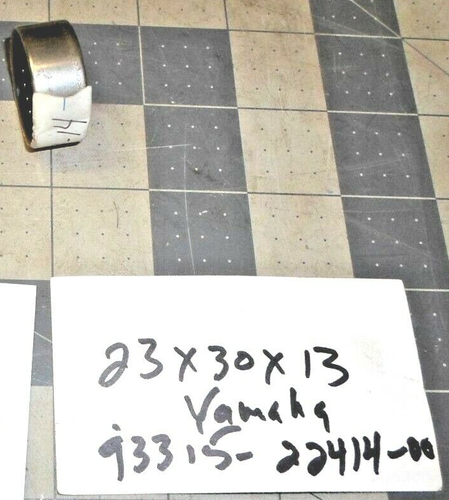 14-
23 x 30 x 13
Yamaha
93315-22414-00